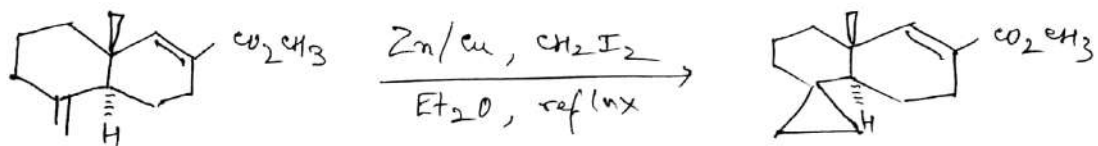 CO2CH3
Zn/Cu, CH2I2
Et2O, reflux
H
CO2CH3
H